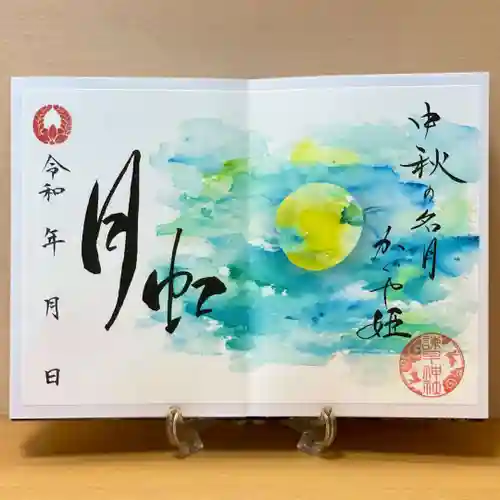 中秋の名月
かぐや姫
諫早神社
月虹
令和 年 月 日